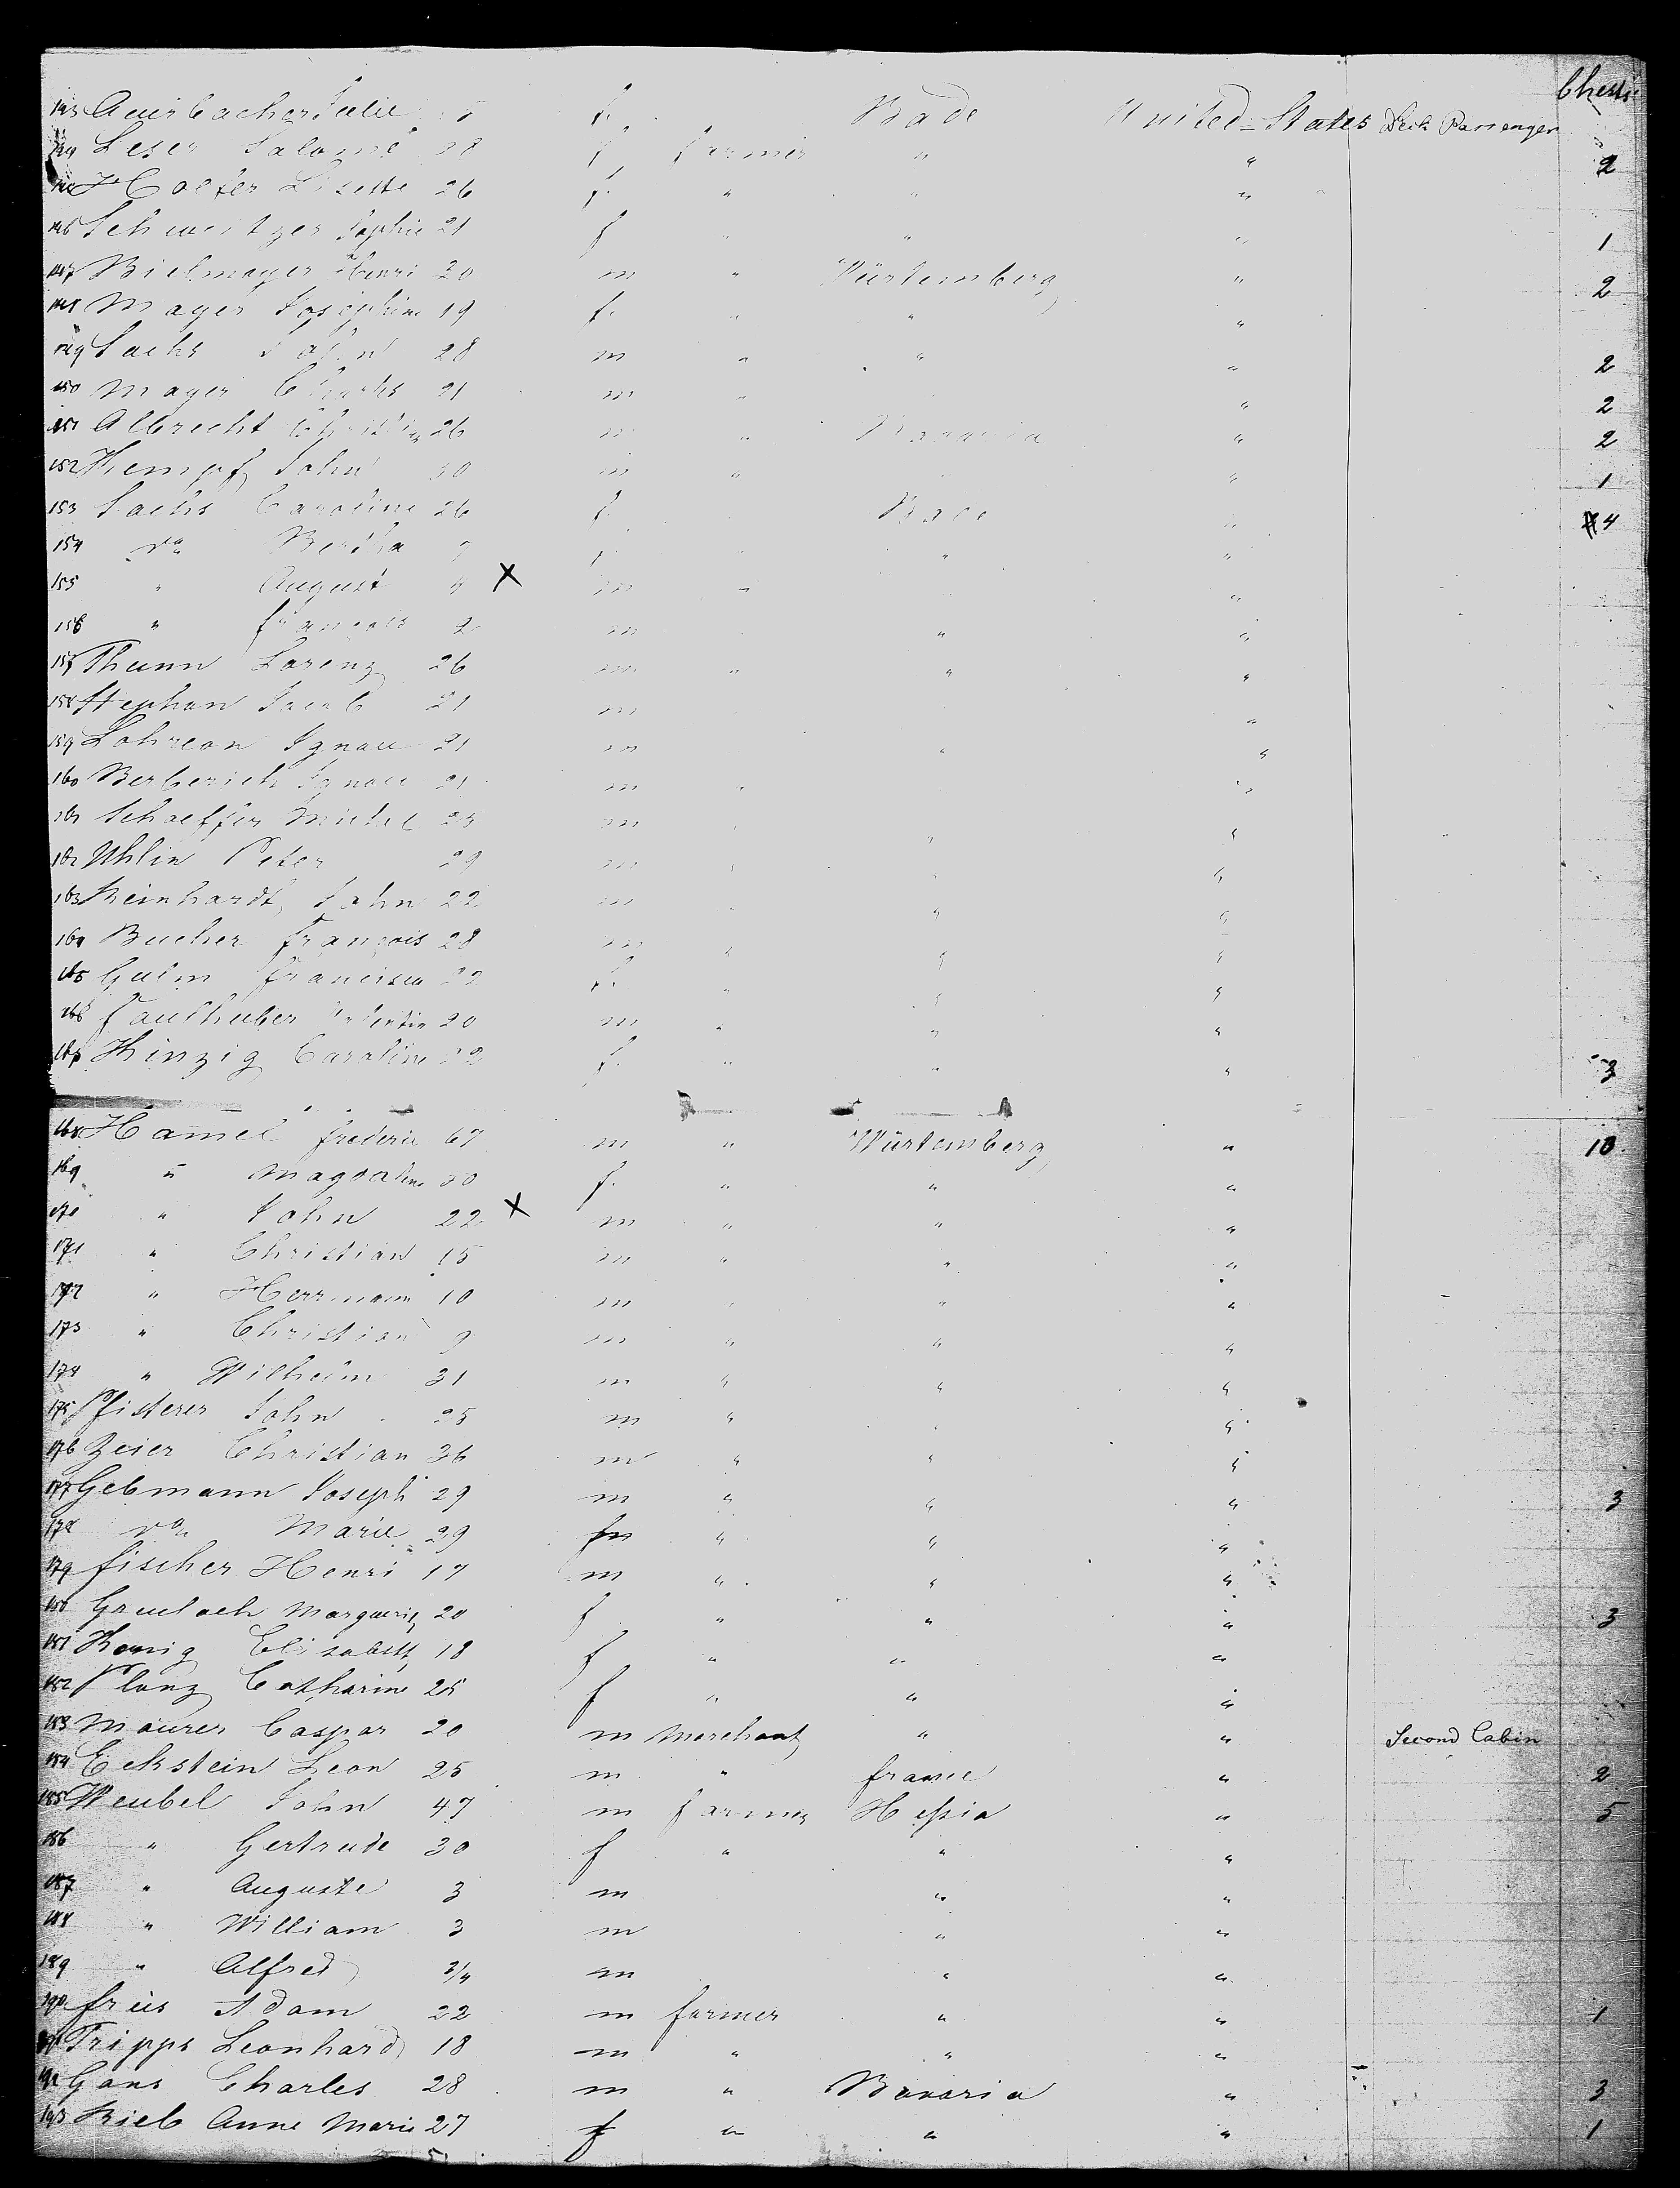 Chests
143 Auerbacher Julie f. Bade United-States Deck Passenger
144 Leser Salomé 28 f farmer " " 2
Hoefer Lisette 26 f. " " "
146 Schweitzer Sophie 21 f " " " 1
147 Bielmayer Henri 20 m " Würtemberg " 2
148 Mayer Josephine 19 f. " " "
149 Sachs John 28 m " " " 2
150 Mayer Charles 21 m " " 2
151 Albrecht Christian 26 m " Bavaria " 2
152 Kempf John 30 m " " 1
153 Sachs Caroline 26 f Bade " 4
154 do Bertha 7 f " "
155 " August 4 X m " "
156 " François 2 m " "
157 Thumm Lorenz 26 m " " "
158 Stephan Jacob 21 m "
159 Lohrean Ignace 21 m " "
160 Berberich Ignace 21 m " "
161 Schaeffer Michel 23 m " " "
162 Uhlin Peter 29 m " " "
163 Reinhardt John 22 m " " "
164 Bucher François 28 m " " "
165 Gulm Francisca 22 f. " " "
166 Faulhuber Valentin 20 m " " "
167 Kinzig Caroline 22 f. " " " 3
168 Hamel Frederic 67 m " Würtemberg " 10
169 " Magdalene 50 f. " " "
170 " John 22 X m " " "
171 " Christian 15 m " " "
172 " Herrmann 10 m " " "
173 " Christian 9 m " " "
174 " Wilhelm 31 m " " "
175 Pfisterer John 25 m " " "
176 Zeier Christian 36 m " " "
177 Gebmann Joseph 29 m " " " 3
178 do Marie 29 f " " "
179 fischer Henri 17 m " " "
180 Grulach Marguerite 20 f " " " 3
181 Kenig Elisabeth 18 f " " "
182 Planz Catharine 25 f " " "
183 Maurer Caspar 20 m Merchant " " Second Cabin
184 Eckstein Leon 25 m " france " 2
185 Weubel John 47 m farmer Hessia " 5
186 " Gertrude 30 f " " "
187 " Auguste 3 m " "
188 " William 3 m " "
189 " Alfred 3/4 m " "
190 freis Adam 22 m farmer " " 1
191 Tripps Leonhard 18 m " " "
192 Gans Charles 28 m " Bavaria " 3
193 Rieb Anne Marie 27 f " " " 1